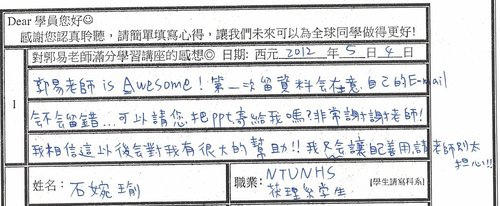 Dear 學員您好☺
感謝您認真聆聽，請簡單填寫心得，讓我們未來可以為全球同學做得更好!
對郭易老師滿分學習講座的感想☺ 日期: 西元 2012 年 5 月 4 日
1
郭易老師 is Awesome! 第一次留資料会在意自己的E-mail
会不会留錯...可以請您把ppt寄給我嗎?非常謝謝老師!
我相信這以後会對我有很大的幫助!! 我会讓自己善用,請老師別太
担心!!!
姓名: 石婉瑜 職業: NTUNHS
护理系学生 [學生請寫科系]